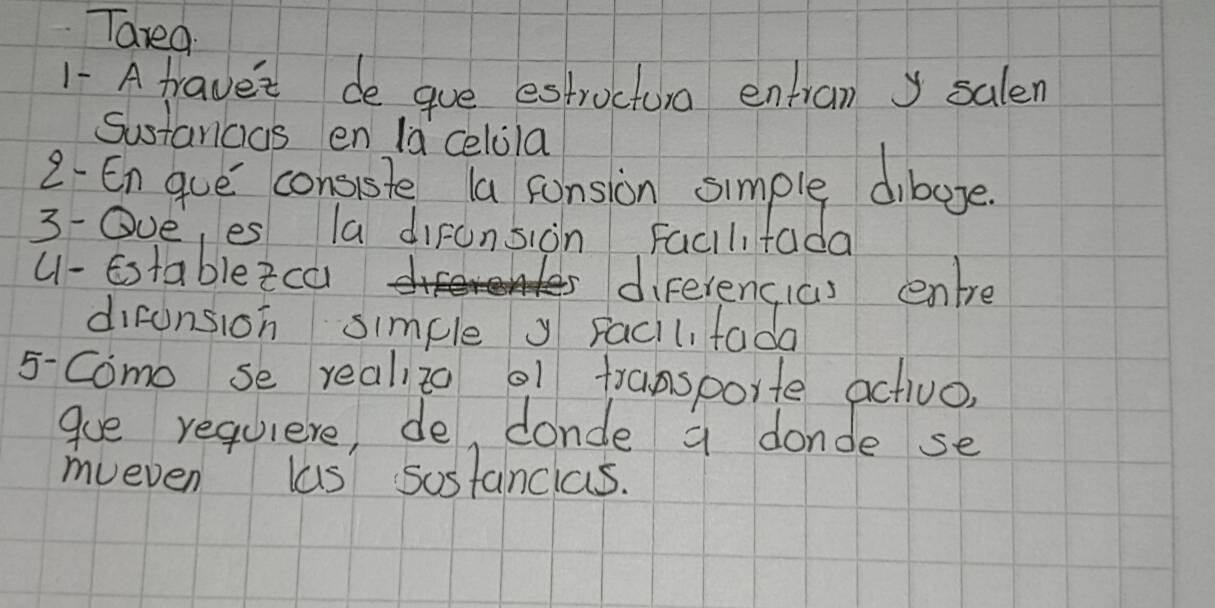 Tarea.
1- A travéz de que estructura entran y salen
Sustancias en la celúla
2- En qué consiste la funsión simple dibuje.
3- Que es la difunsión Facilitada
4- Establezca diferentes diferencias entre
difunsión simple y Facilitada
5- Cómo se realiza el transporte activo,
que requiere, de donde a donde se
mueven las sustancias.